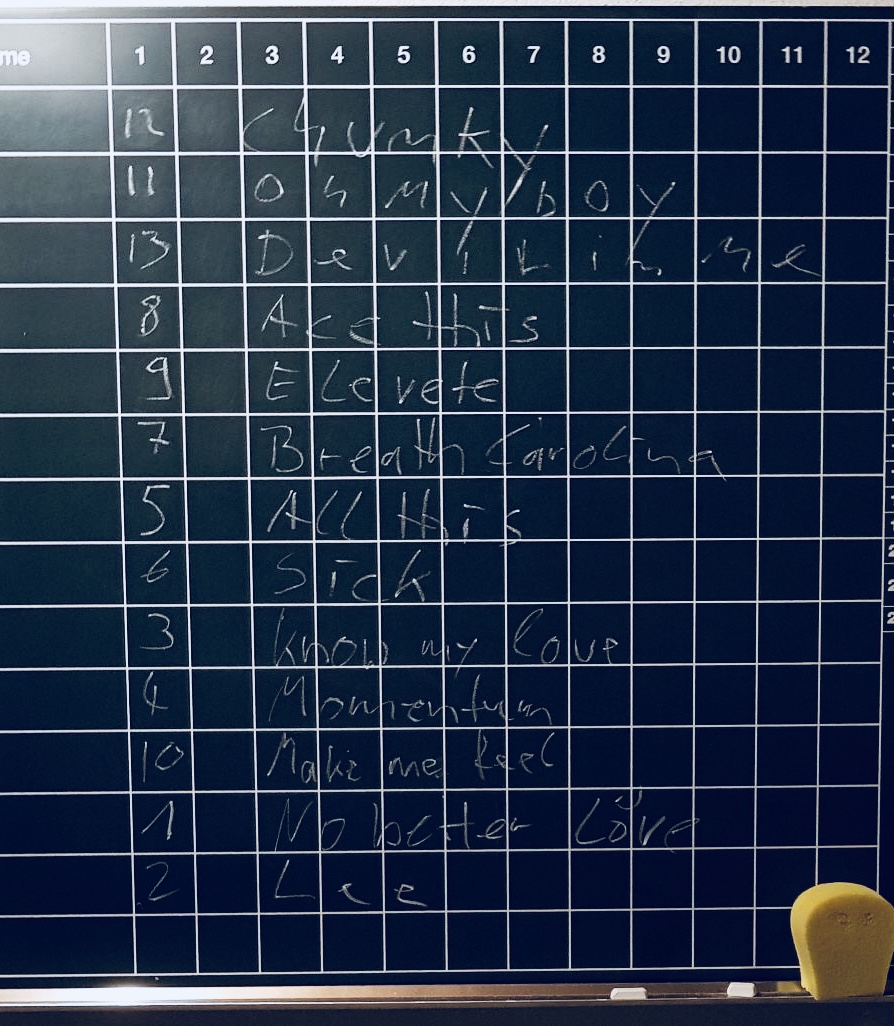 me 1 2 3 4 5 6 7 8 9 10 11 12
12 Chunky
11 Oh my boy
13 Devil in me
8 Ace this
9 Elevete
7 Breath Carolina
5 All this
6 Sick
3 know my love
4 Momentum
10 Make me feel
1 No better Love
2 Lee
2
2
2